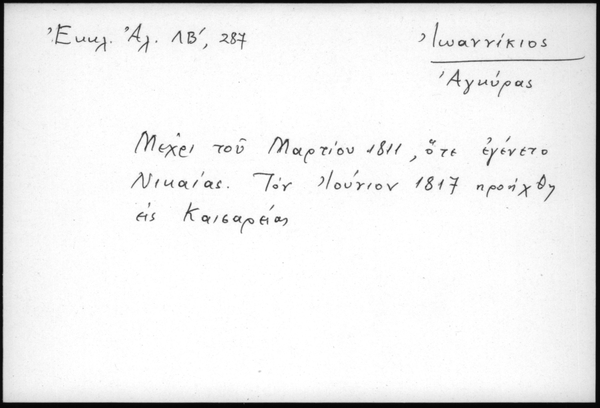 Ἐκκλ. Ἀλ. ΛΒ', 287
Ἰωαννίκιος
Ἀγκύρας
Μέχρι τοῦ Μαρτίου 1811, ὅτε ἐγένετο
Νικαίας. Τὸν Ἰούνιον 1817 προήχθη
εἰς Καισαρείας